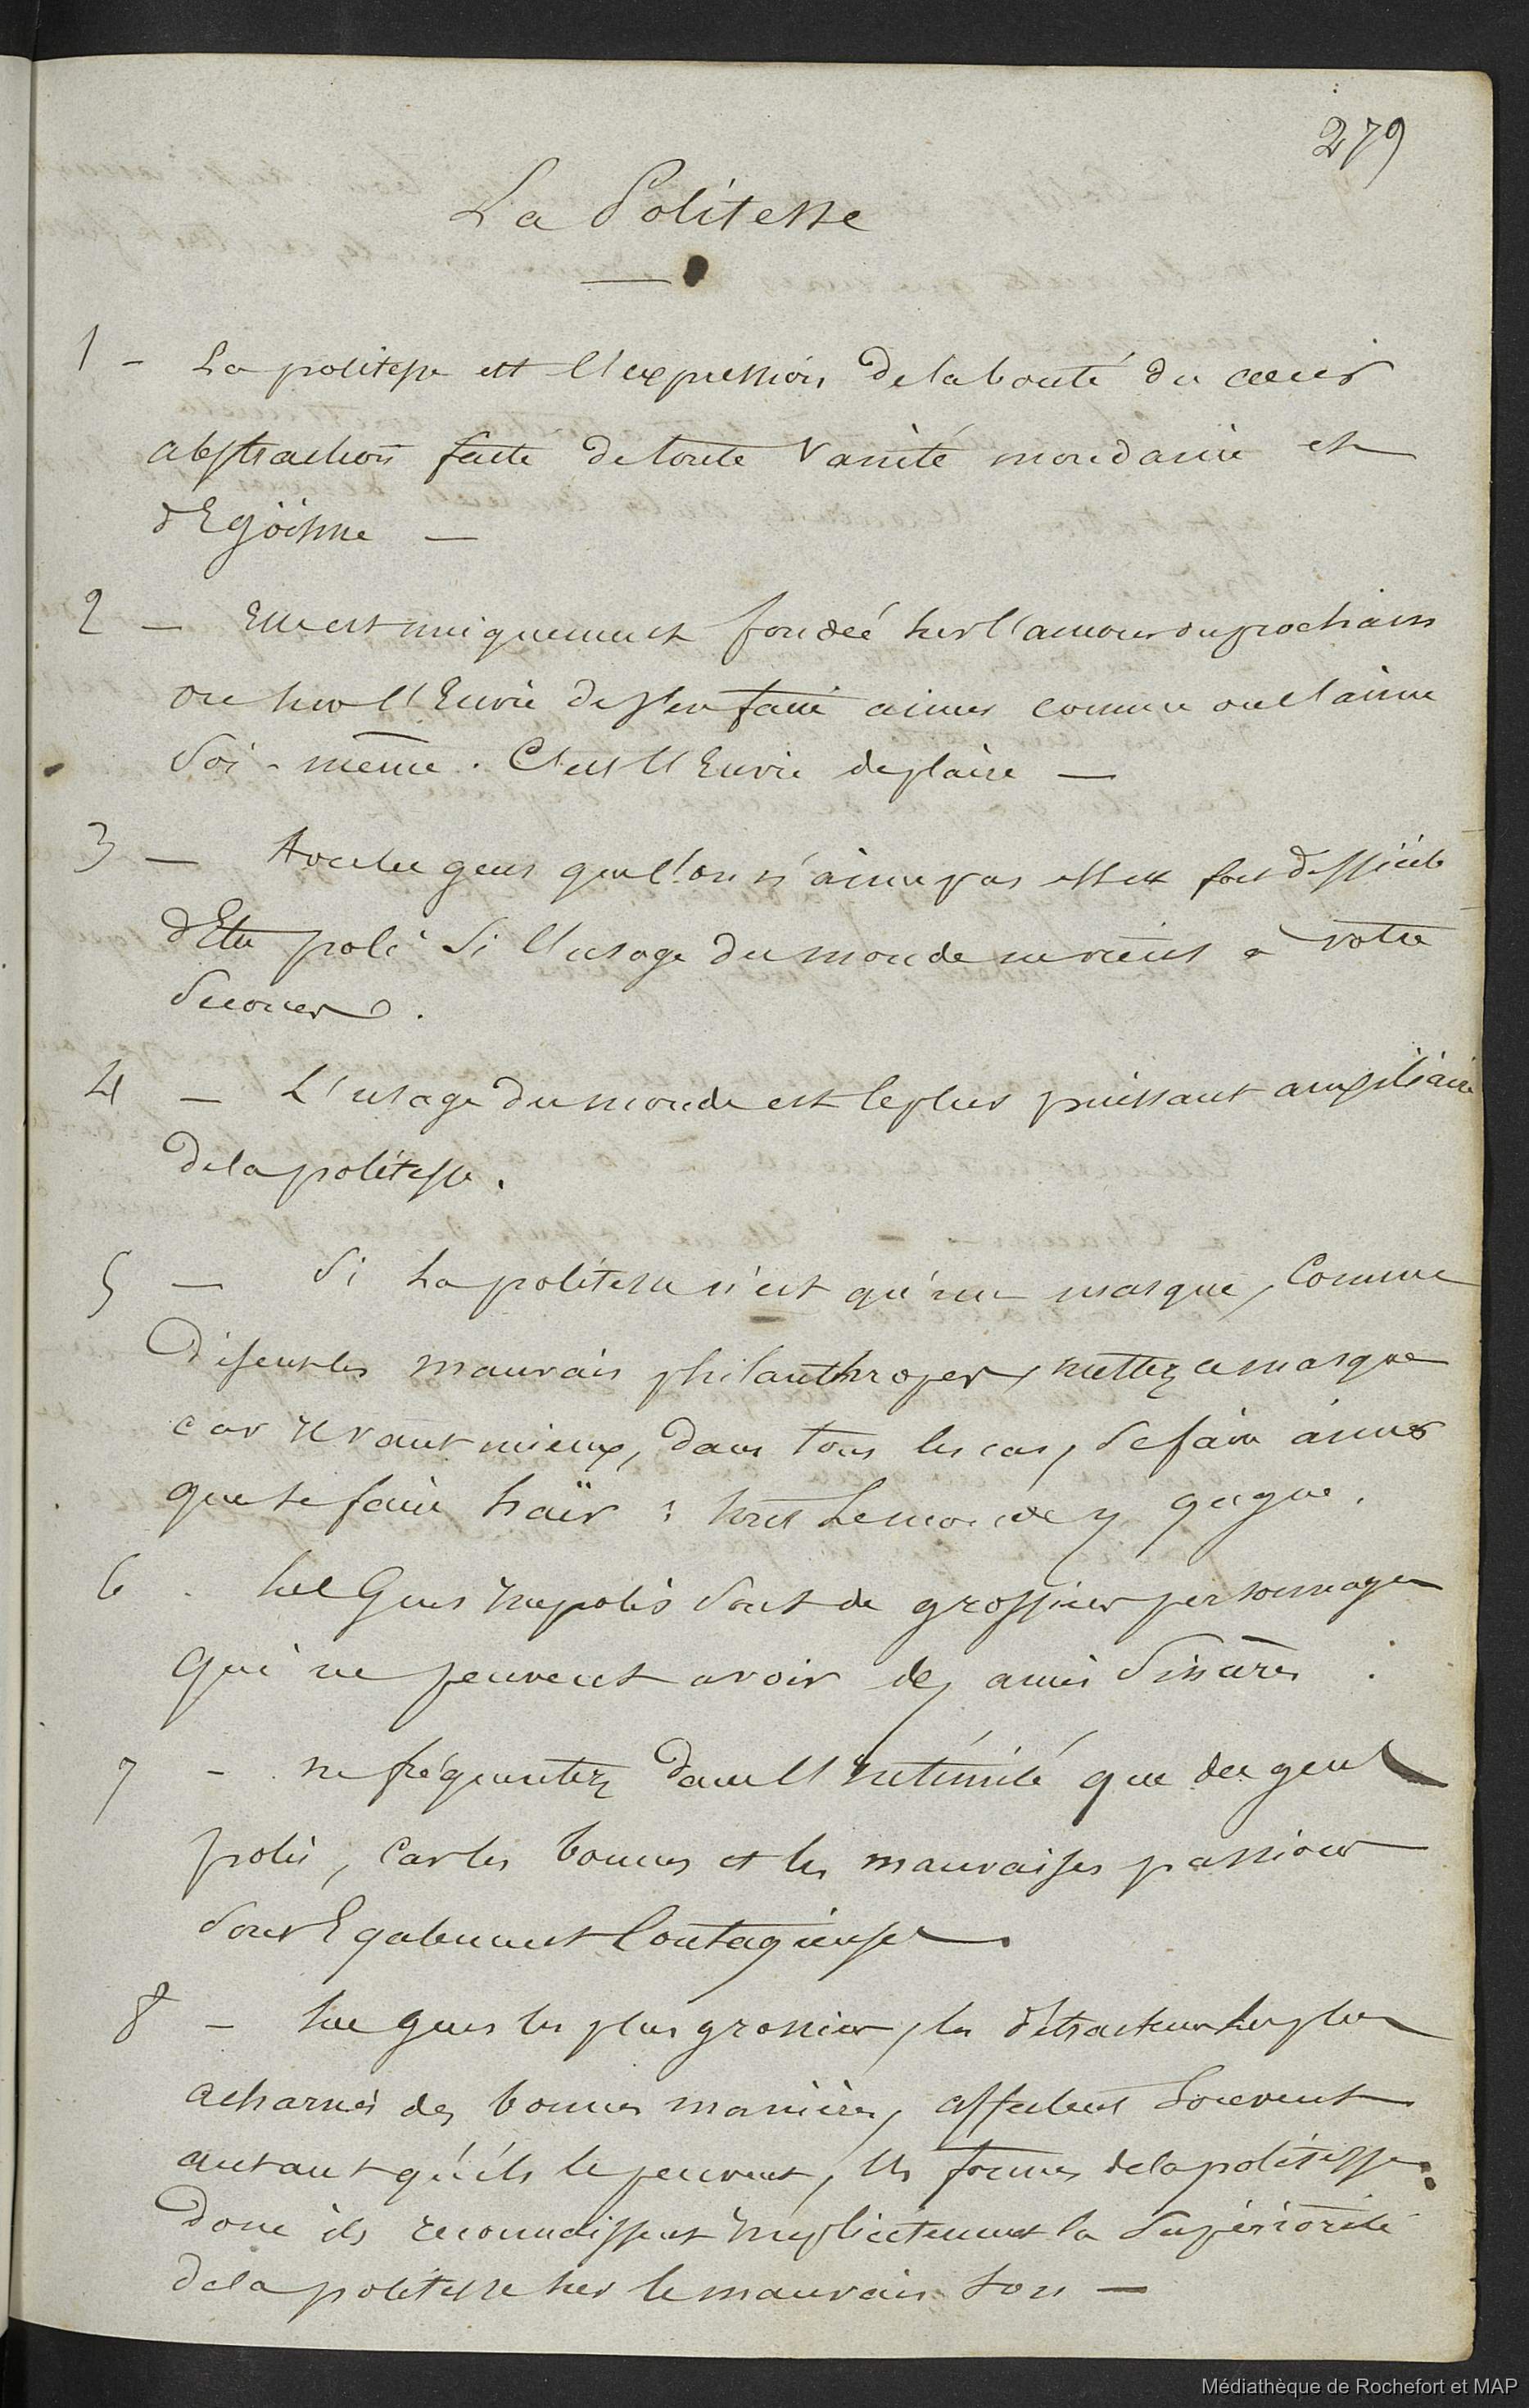 279
La Politesse
1 - La politesse est l'expression de la bonté du cœur
abstraction faite de toute vanité mondaine et
d'Egoïsme —
2 — Elle est uniquement fondée sur l'amour du prochain
ou sur l'Envie de s'en faire aimer comme on s'aime
soi-même. C'est l'Envie de plaire —
3 — Avec les gens que l'on n'aime pas il est fort difficile
d'Etre poli si l'usage du monde ne vient à votre
secours.
4 — L'usage du monde est le plus puissant auxiliaire
de la politesse.
5 — Si la politesse n'est qu'un masque, comme
disent les mauvais philanthropes, mettez ce masque
car il vaut mieux, dans tous les cas, se faire aimer
que se faire haïr : tout le monde y gagne.
6 . Les Gens impolis sont de grossiers personnages
qui ne peuvent avoir des amis sincères.
7 - ne fréquentez dans l'intimité que des gens
polis, car les bonnes et les mauvaises passions
sont Egalement Contagieuses.
8 — Les gens les plus grossiers, les détracteurs les plus
acharnés des bonnes manières, affectent souvent
autant qu'ils le peuvent, les formes de la politesse :
donc ils reconnaissent implicitement la supériorité
de la politesse sur le mauvais ton —
Médiathèque de Rochefort et MAP